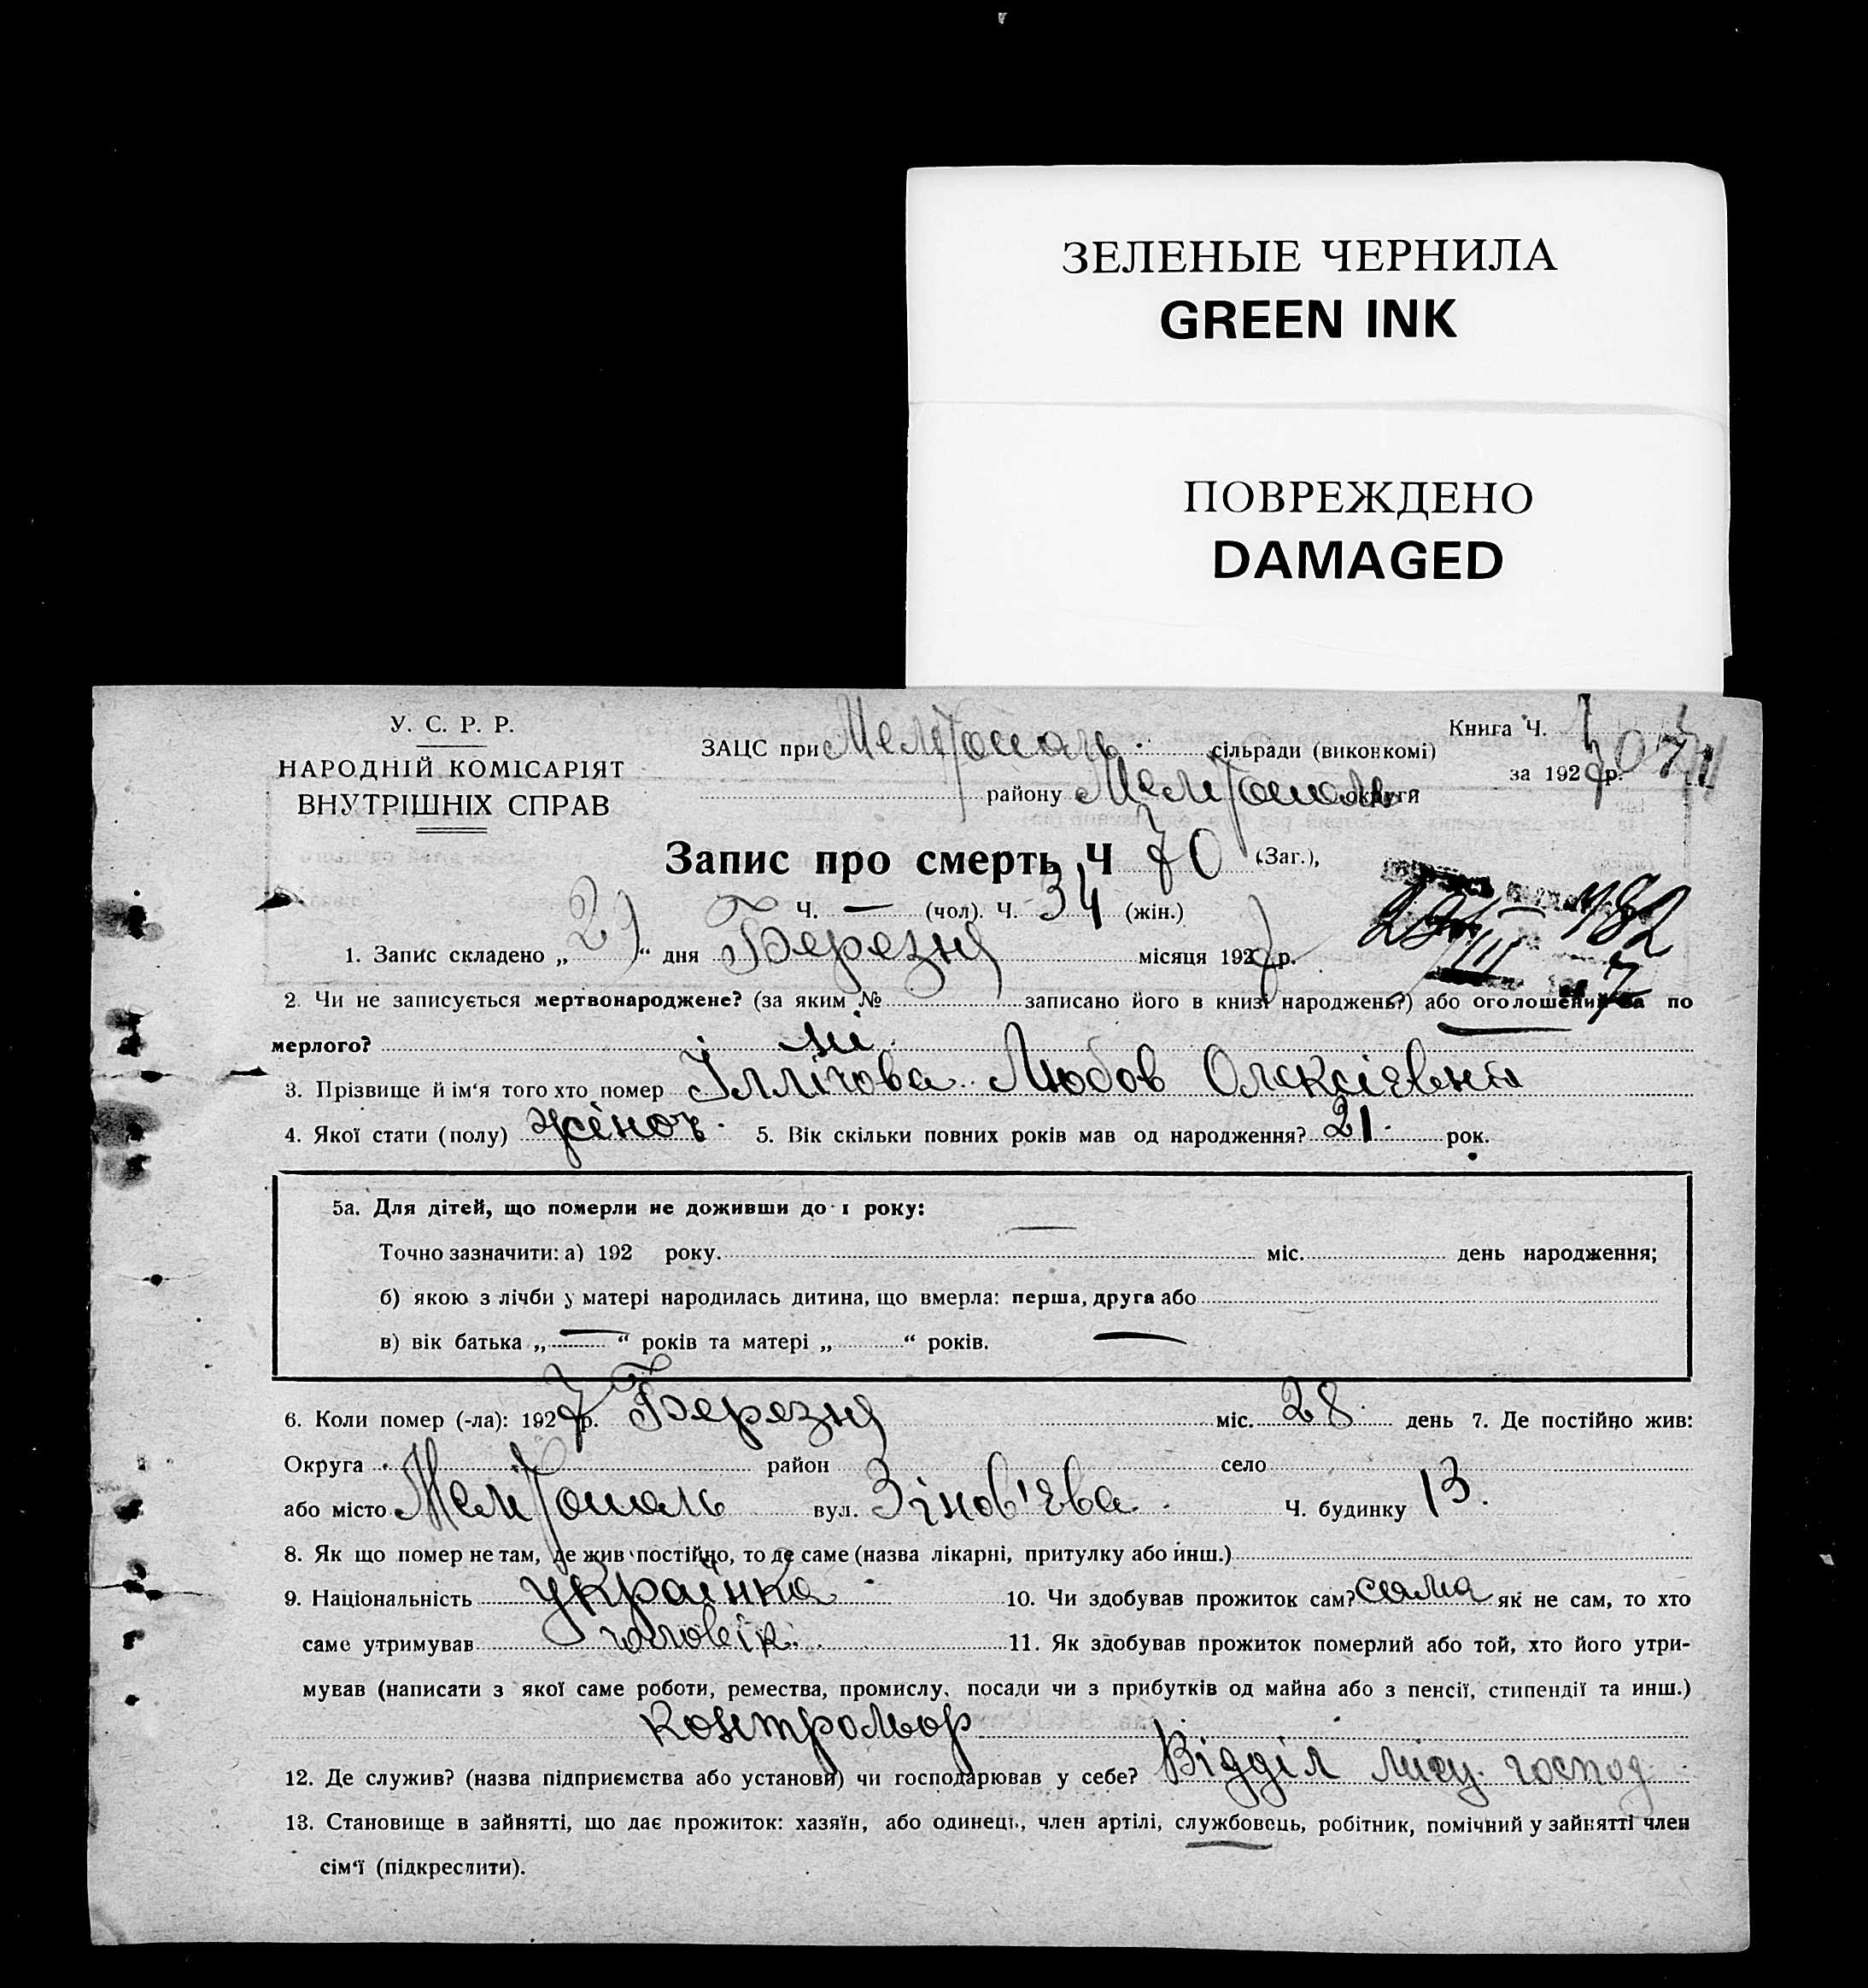 ЗЕЛЕНЫЕ ЧЕРНИЛА
GREEN INK
ПОВРЕЖДЕНО
DAMAGED
У. С. Р. Р.
НАРОДНІЙ КОМІСАРІЯТ
ВНУТРІШНІХ СПРАВ
Книга Ч.
ЗАЦС при Мелітополь сільради (виконкомі)
за 1927 р.
району Мелітополь округи
Запис про смерть Ч 70 (Заг.),
Ч. — (чол). Ч. 34 (жін.)
1. Запис складено „29“ дня Березня місяця 1927 р.
2. Чи не записується мертвонароджене? (за яким № записано його в книзі народжень?) або оголошений за по
мерлого? ні
3. Прізвище й ім‘я того хто помер Іллічова Любов Олексіївна
4. Якої стати (полу) жіноч. 5. Вік скільки повних років мав од народження? 21 рок.
5а. Для дітей, що померли не доживши до 1 року:
Точно зазначити: а) 192 року. міс. день народження;
б) якою з лічби у матері народилась дитина, що вмерла: перша, друга або
в) вік батька „—“ років та матері „ “ років. —
6. Коли помер (-ла): 1927 р. Березня міс. 28 день 7. Де постійно жив:
Округа район село
або місто Мелітополь вул. Зінов'єва Ч. будинку 13.
8. Як що помер не там, де жив постійно, то де саме (назва лікарні, притулку або йнш.)
9. Національність українка 10. Чи здобував прожиток сам? сама як не сам, то хто
саме утримував чоловік 11. Як здобував прожиток померлий або той, хто його утри-
мував (написати з якої саме роботи, ремества, промислу, посади чи з прибутків од майна або з пенсії, стипендії та инш.)
контрольор
12. Де служив? (назва підприємства або установи) чи господарював у себе? Відділ місц. господ
13. Становище в зайнятті, що дає прожиток: хазяїн, або одинець, член артілі, службовець, робітник, помічний у зайнятті член
сім‘ї (підкреслити).